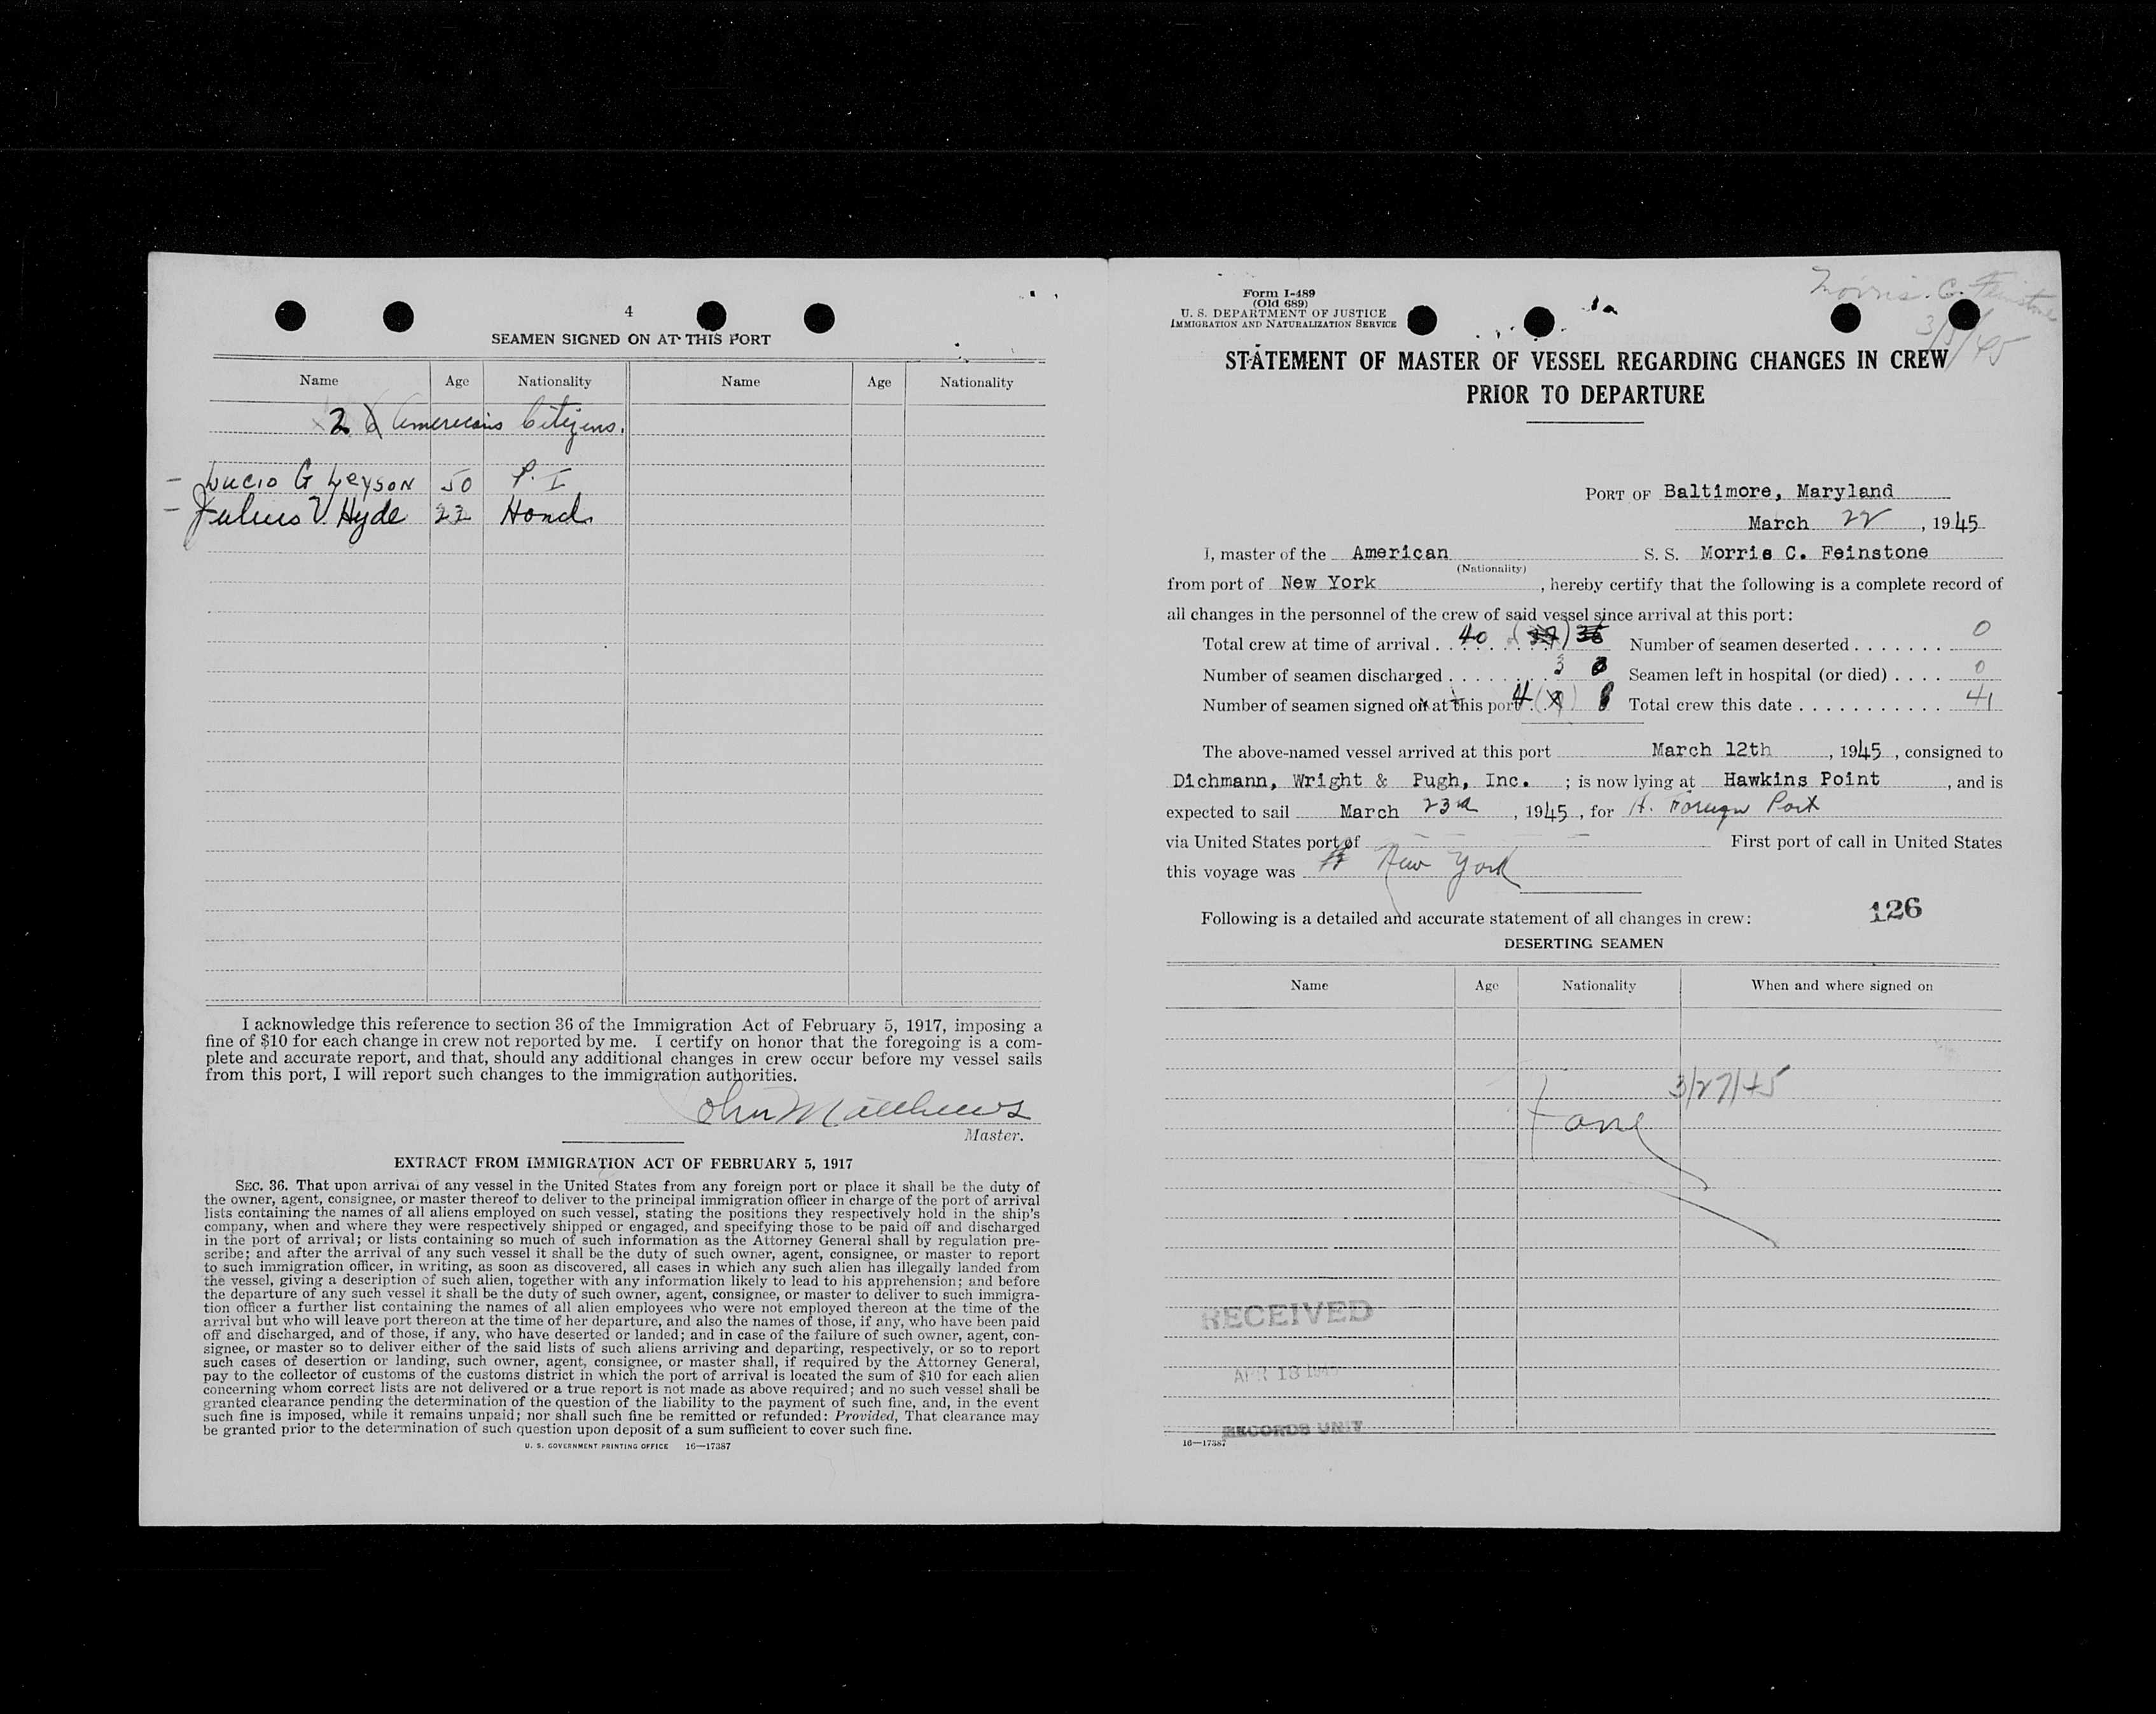 4
SEAMEN SIGNED ON AT THIS PORT
Name Age Nationality Name Age Nationality
2 American Citizens.
- Lucio G Leyson 50 P. I
- Julius V. Hyde 22 Hond.
I acknowledge this reference to section 36 of the Immigration Act of February 5, 1917, imposing a
fine of $10 for each change in crew not reported by me. I certify on honor that the foregoing is a com-
plete and accurate report, and that, should any additional changes in crew occur before my vessel sails
from this port, I will report such changes to the immigration authorities.
John Matthews
Master.
EXTRACT FROM IMMIGRATION ACT OF FEBRUARY 5, 1917
SEC. 36. That upon arrival of any vessel in the United States from any foreign port or place it shall be the duty of
the owner, agent, consignee, or master thereof to deliver to the principal immigration officer in charge of the port of arrival
lists containing the names of all aliens employed on such vessel, stating the positions they respectively hold in the ship's
company, when and where they were respectively shipped or engaged, and specifying those to be paid off and discharged
in the port of arrival; or lists containing so much of such information as the Attorney General shall by regulation pre-
scribe; and after the arrival of any such vessel it shall be the duty of such owner, agent, consignee, or master to report
to such immigration officer, in writing, as soon as discovered, all cases in which any such alien has illegally landed from
the vessel, giving a description of such alien, together with any information likely to lead to his apprehension; and before
the departure of any such vessel it shall be the duty of such owner, agent, consignee, or master to deliver to such immigra-
tion officer a further list containing the names of all alien employees who were not employed thereon at the time of the
arrival but who will leave port thereon at the time of her departure, and also the names of those, if any, who have been paid
off and discharged, and of those, if any, who have deserted or landed; and in case of the failure of such owner, agent, con-
signee, or master so to deliver either of the said lists of such aliens arriving and departing, respectively, or so to report
such cases of desertion or landing, such owner, agent, consignee, or master shall, if required by the Attorney General,
pay to the collector of customs of the customs district in which the port of arrival is located the sum of $10 for each alien
concerning whom correct lists are not delivered or a true report is not made as above required; and no such vessel shall be
granted clearance pending the determination of the question of the liability to the payment of such fine, and, in the event
such fine is imposed, while it remains unpaid; nor shall such fine be remitted or refunded: Provided, That clearance may
be granted prior to the determination of such question upon deposit of a sum sufficient to cover such fine.
U. S. GOVERNMENT PRINTING OFFICE 16—17387
Form I-489
(Old 689)
U. S. DEPARTMENT OF JUSTICE
IMMIGRATION AND NATURALIZATION SERVICE
Morris. C. Feinstone
3/5/45
STATEMENT OF MASTER OF VESSEL REGARDING CHANGES IN CREW
PRIOR TO DEPARTURE
PORT OF Baltimore, Maryland
March 22, 1945
I, master of the American S. S. Morris C. Feinstone
(Nationality)
from port of New York, hereby certify that the following is a complete record of
all changes in the personnel of the crew of said vessel since arrival at this port:
Total crew at time of arrival 40 Number of seamen deserted 0
Number of seamen discharged 3 Seamen left in hospital (or died) 0
Number of seamen signed on at this port 4 Total crew this date 41
The above-named vessel arrived at this port March 12th, 1945, consigned to
Dichmann, Wright & Pugh, Inc. ; is now lying at Hawkins Point, and is
expected to sail March 23rd, 1945, for A. Foreign Port
via United States port of First port of call in United States
this voyage was New York
Following is a detailed and accurate statement of all changes in crew: 126
DESERTING SEAMEN
Name Age Nationality When and where signed on
3/27/45
RECEIVED
APR 18 1945
RECORDS UNIT
16—17387